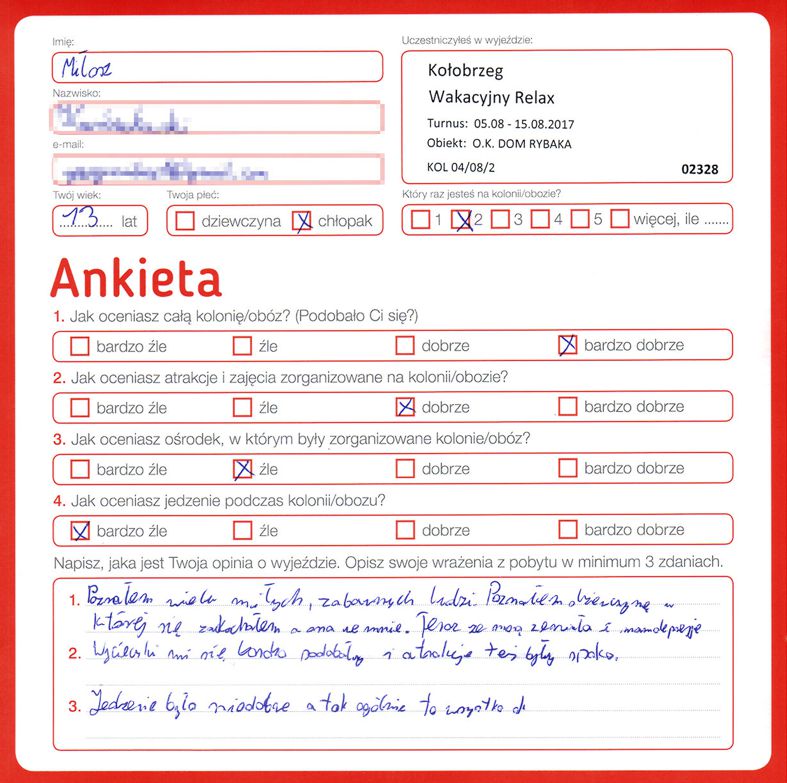 Imię:
Miłosz
Nazwisko:
e-mail:
Twój wiek:
13 lat
Twoja płeć:
dziewczyna chłopak
Uczestniczyłeś w wyjeździe:
Kołobrzeg
Wakacyjny Relax
Turnus: 05.08 - 15.08.2017
Obiekt: O.K. DOM RYBAKA
KOL 04/08/2 02328
Który raz jesteś na kolonii/obozie?
1 2 3 4 5 więcej, ile .......
Ankieta
1. Jak oceniasz całą kolonię/obóz? (Podobało Ci się?)
bardzo źle źle dobrze bardzo dobrze
2. Jak oceniasz atrakcje i zajęcia zorganizowane na kolonii/obozie?
bardzo źle źle dobrze bardzo dobrze
3. Jak oceniasz ośrodek, w którym były zorganizowane kolonie/obóz?
bardzo źle źle dobrze bardzo dobrze
4. Jak oceniasz jedzenie podczas kolonii/obozu?
bardzo źle źle dobrze bardzo dobrze
Napisz, jaka jest Twoja opinia o wyjeździe. Opisz swoje wrażenia z pobytu w minimum 3 zdaniach.
1. Poznałem wielu miłych, zabawnych ludzi Poznałem dziewczynę w
której się zakochałem a ona we mnie. Teraz ze mną zerwała i mam depresje
2. Wycieczki mi się bardzo podobały i atrakcje też były spoko.
3. Jedzenie było niedobre a tak ogólnie to wszystko